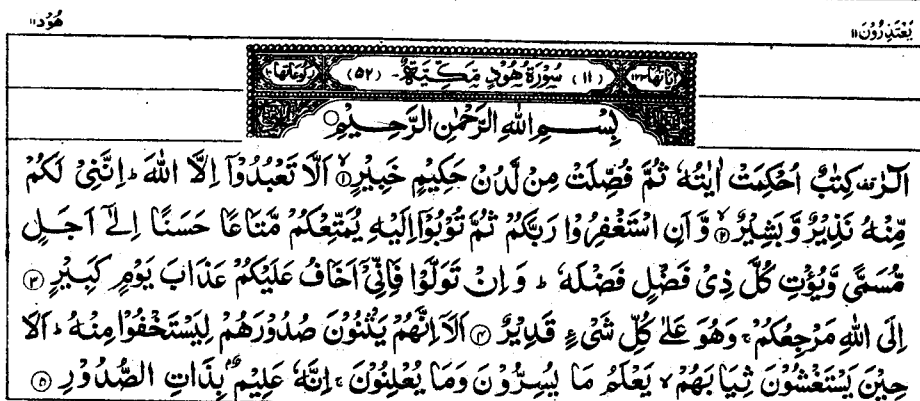 يَعْتَذِرُونَ ۱۱
هُوْد ۱۱
اٰيَاتُهَا ۱۲۳ (۱۱) سُوْرَةُ هُوْدٍ مَّكِّيَّةٌ (۵۲) رُكُوْعَاتُهَا ۱۰
بِسْمِ اللّٰهِ الرَّحْمٰنِ الرَّحِيْمِ
الٓرٰ كِتٰبٌ اُحْكِمَتْ اٰيٰتُهٗ ثُمَّ فُصِّلَتْ مِنْ لَّدُنْ حَكِيْمٍ خَبِيْرٍ ۱ اَلَّا تَعْبُدُوْٓا اِلَّا اللّٰهَ ؕ اِنَّنِيْ لَكُمْ
مِّنْهُ نَذِيْرٌ وَّبَشِيْرٌ ۲ وَّاَنِ اسْتَغْفِرُوْا رَبَّكُمْ ثُمَّ تُوْبُوْٓا اِلَيْهِ يُمَتِّعْكُمْ مَّتَاعًا حَسَنًا اِلٰٓى اَجَلٍ
مُّسَمًّى وَّيُؤْتِ كُلَّ ذِيْ فَضْلٍ فَضْلَهٗ ؕ وَاِنْ تَوَلَّوْا فَاِنِّيْٓ اَخَافُ عَلَيْكُمْ عَذَابَ يَوْمٍ كَبِيْرٍ ۳
اِلَى اللّٰهِ مَرْجِعُكُمْ ۚ وَهُوَ عَلٰى كُلِّ شَيْءٍ قَدِيْرٌ ۴ اَلَآ اِنَّهُمْ يَثْنُوْنَ صُدُوْرَهُمْ لِيَسْتَخْفُوْا مِنْهُ ؕ اَلَا
حِيْنَ يَسْتَغْشُوْنَ ثِيَابَهُمْ ۙ يَعْلَمُ مَا يُسِرُّوْنَ وَمَا يُعْلِنُوْنَ ۚ اِنَّهٗ عَلِيْمٌۢ بِذَاتِ الصُّدُوْرِ ۵